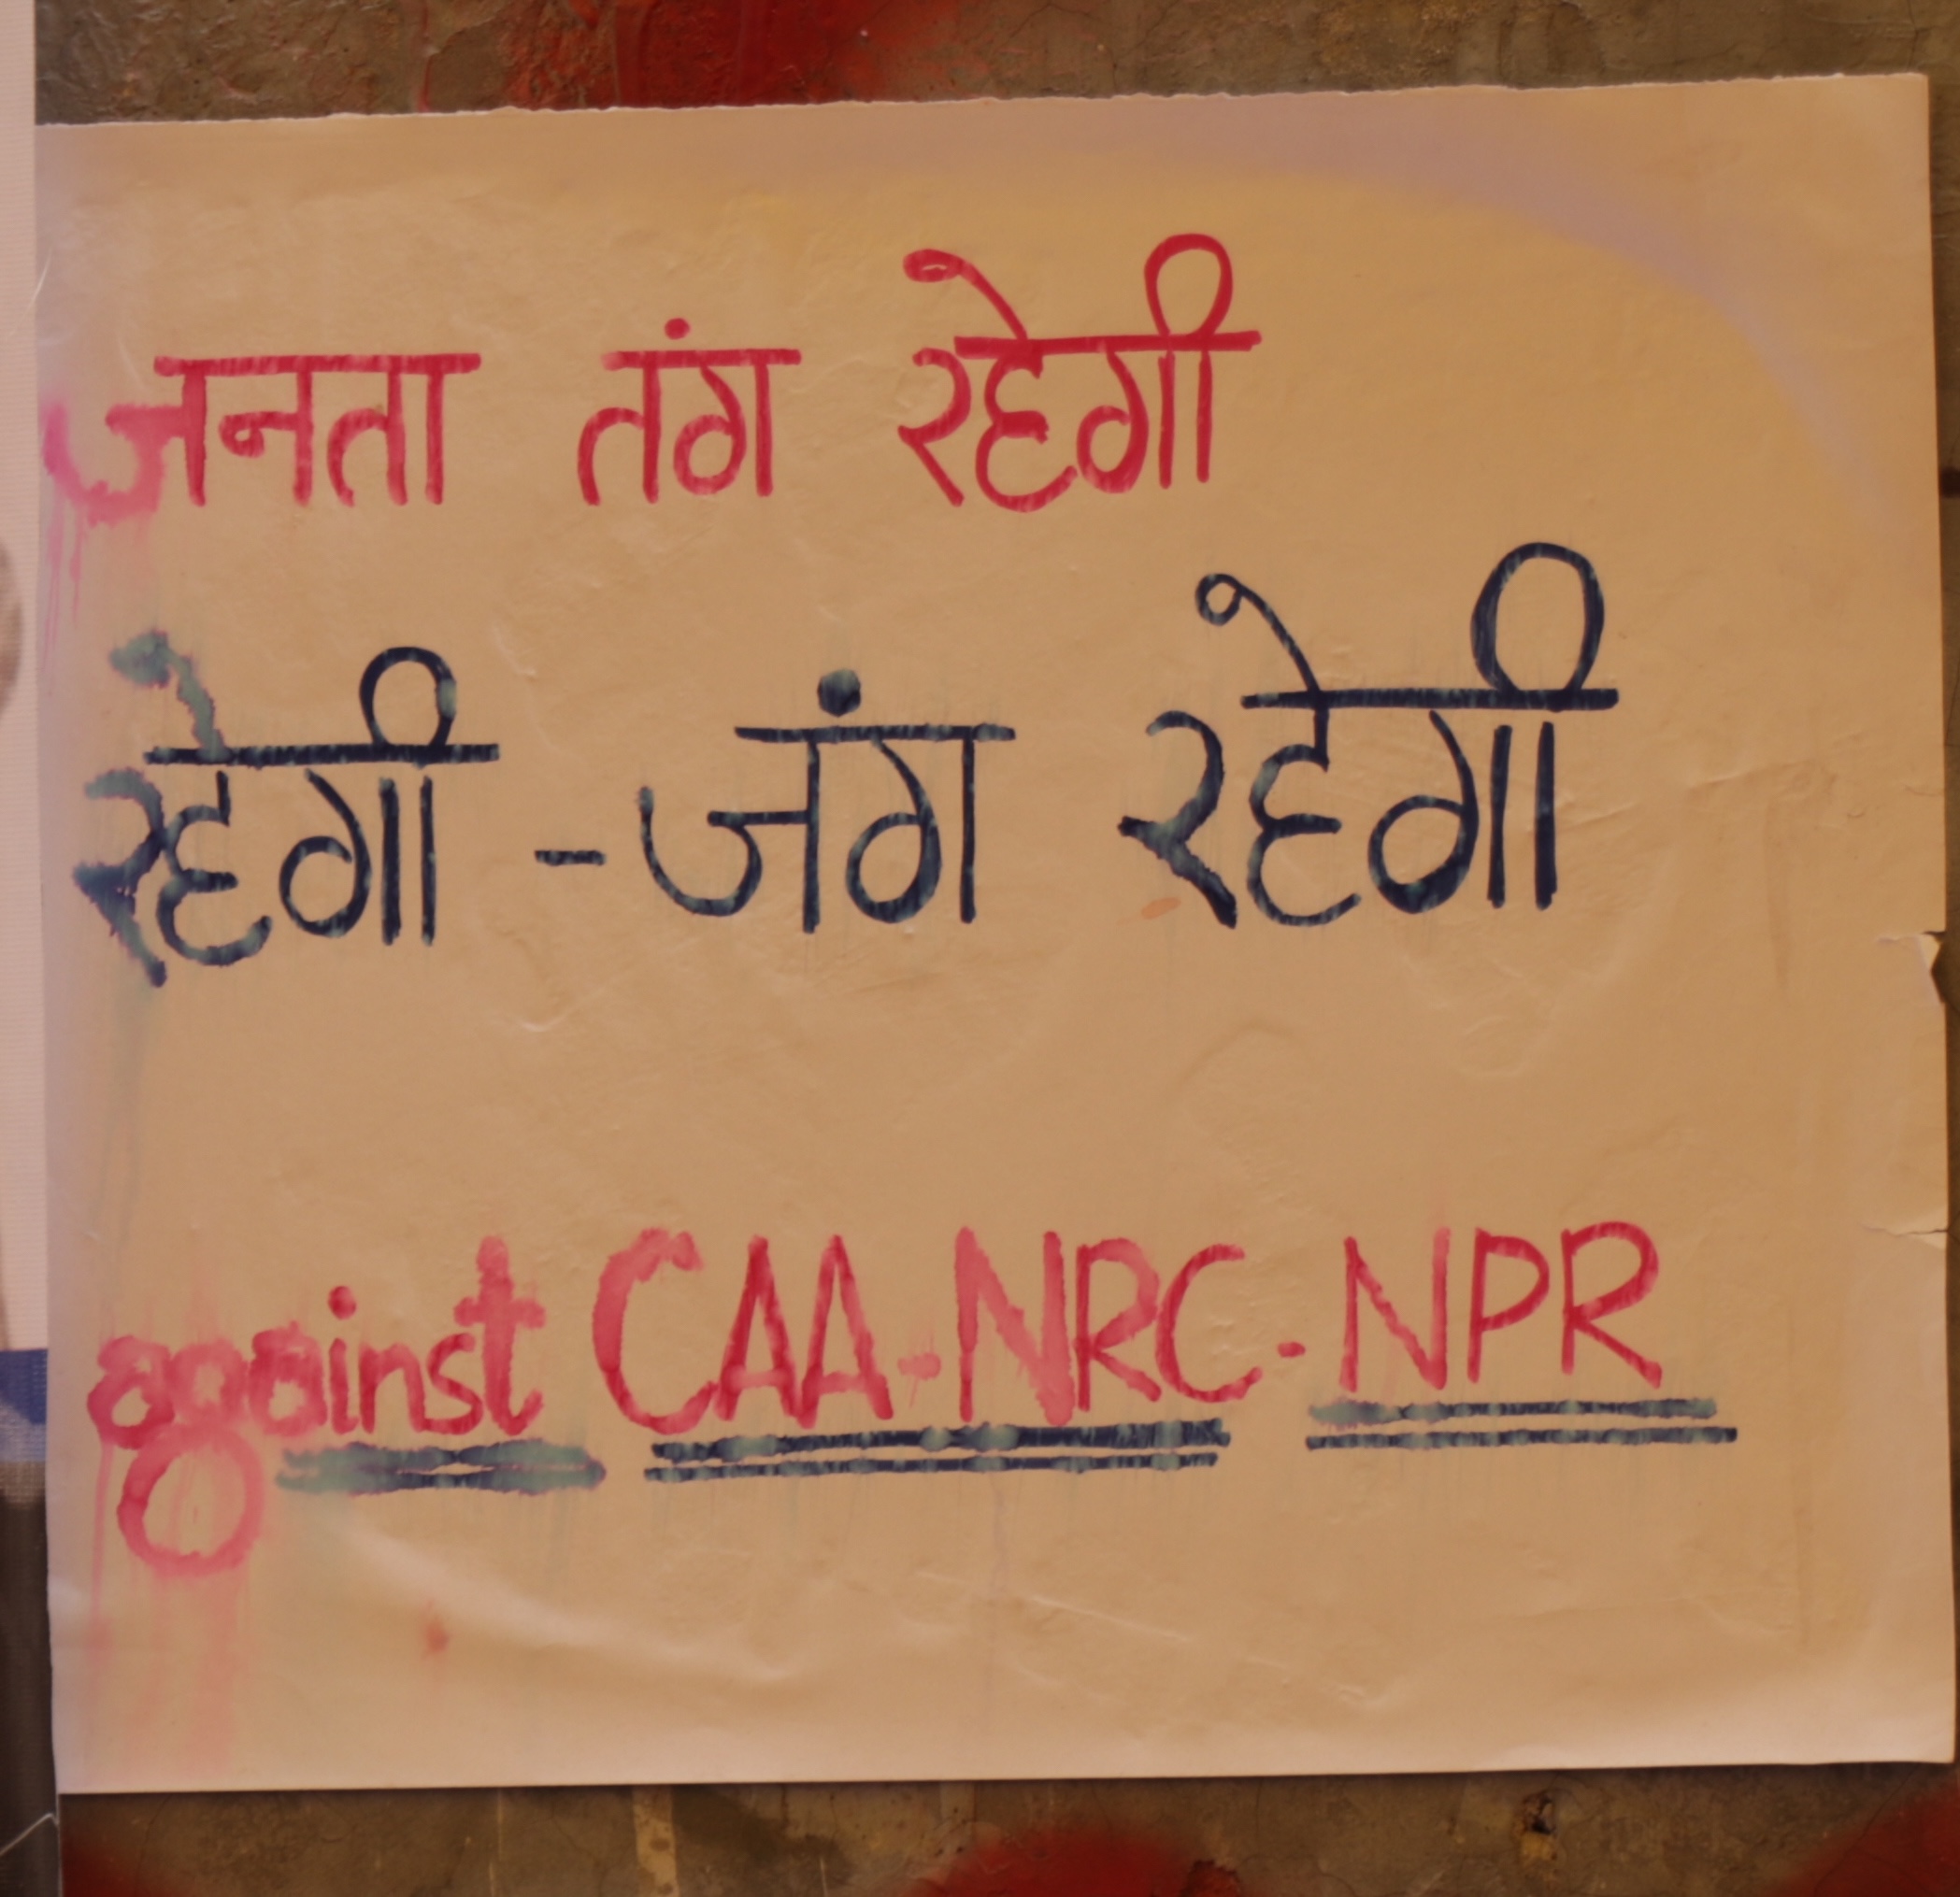 जनता तंग रहेगी
रहेगी - जंग रहेगी
against CAA-NRC-NPR